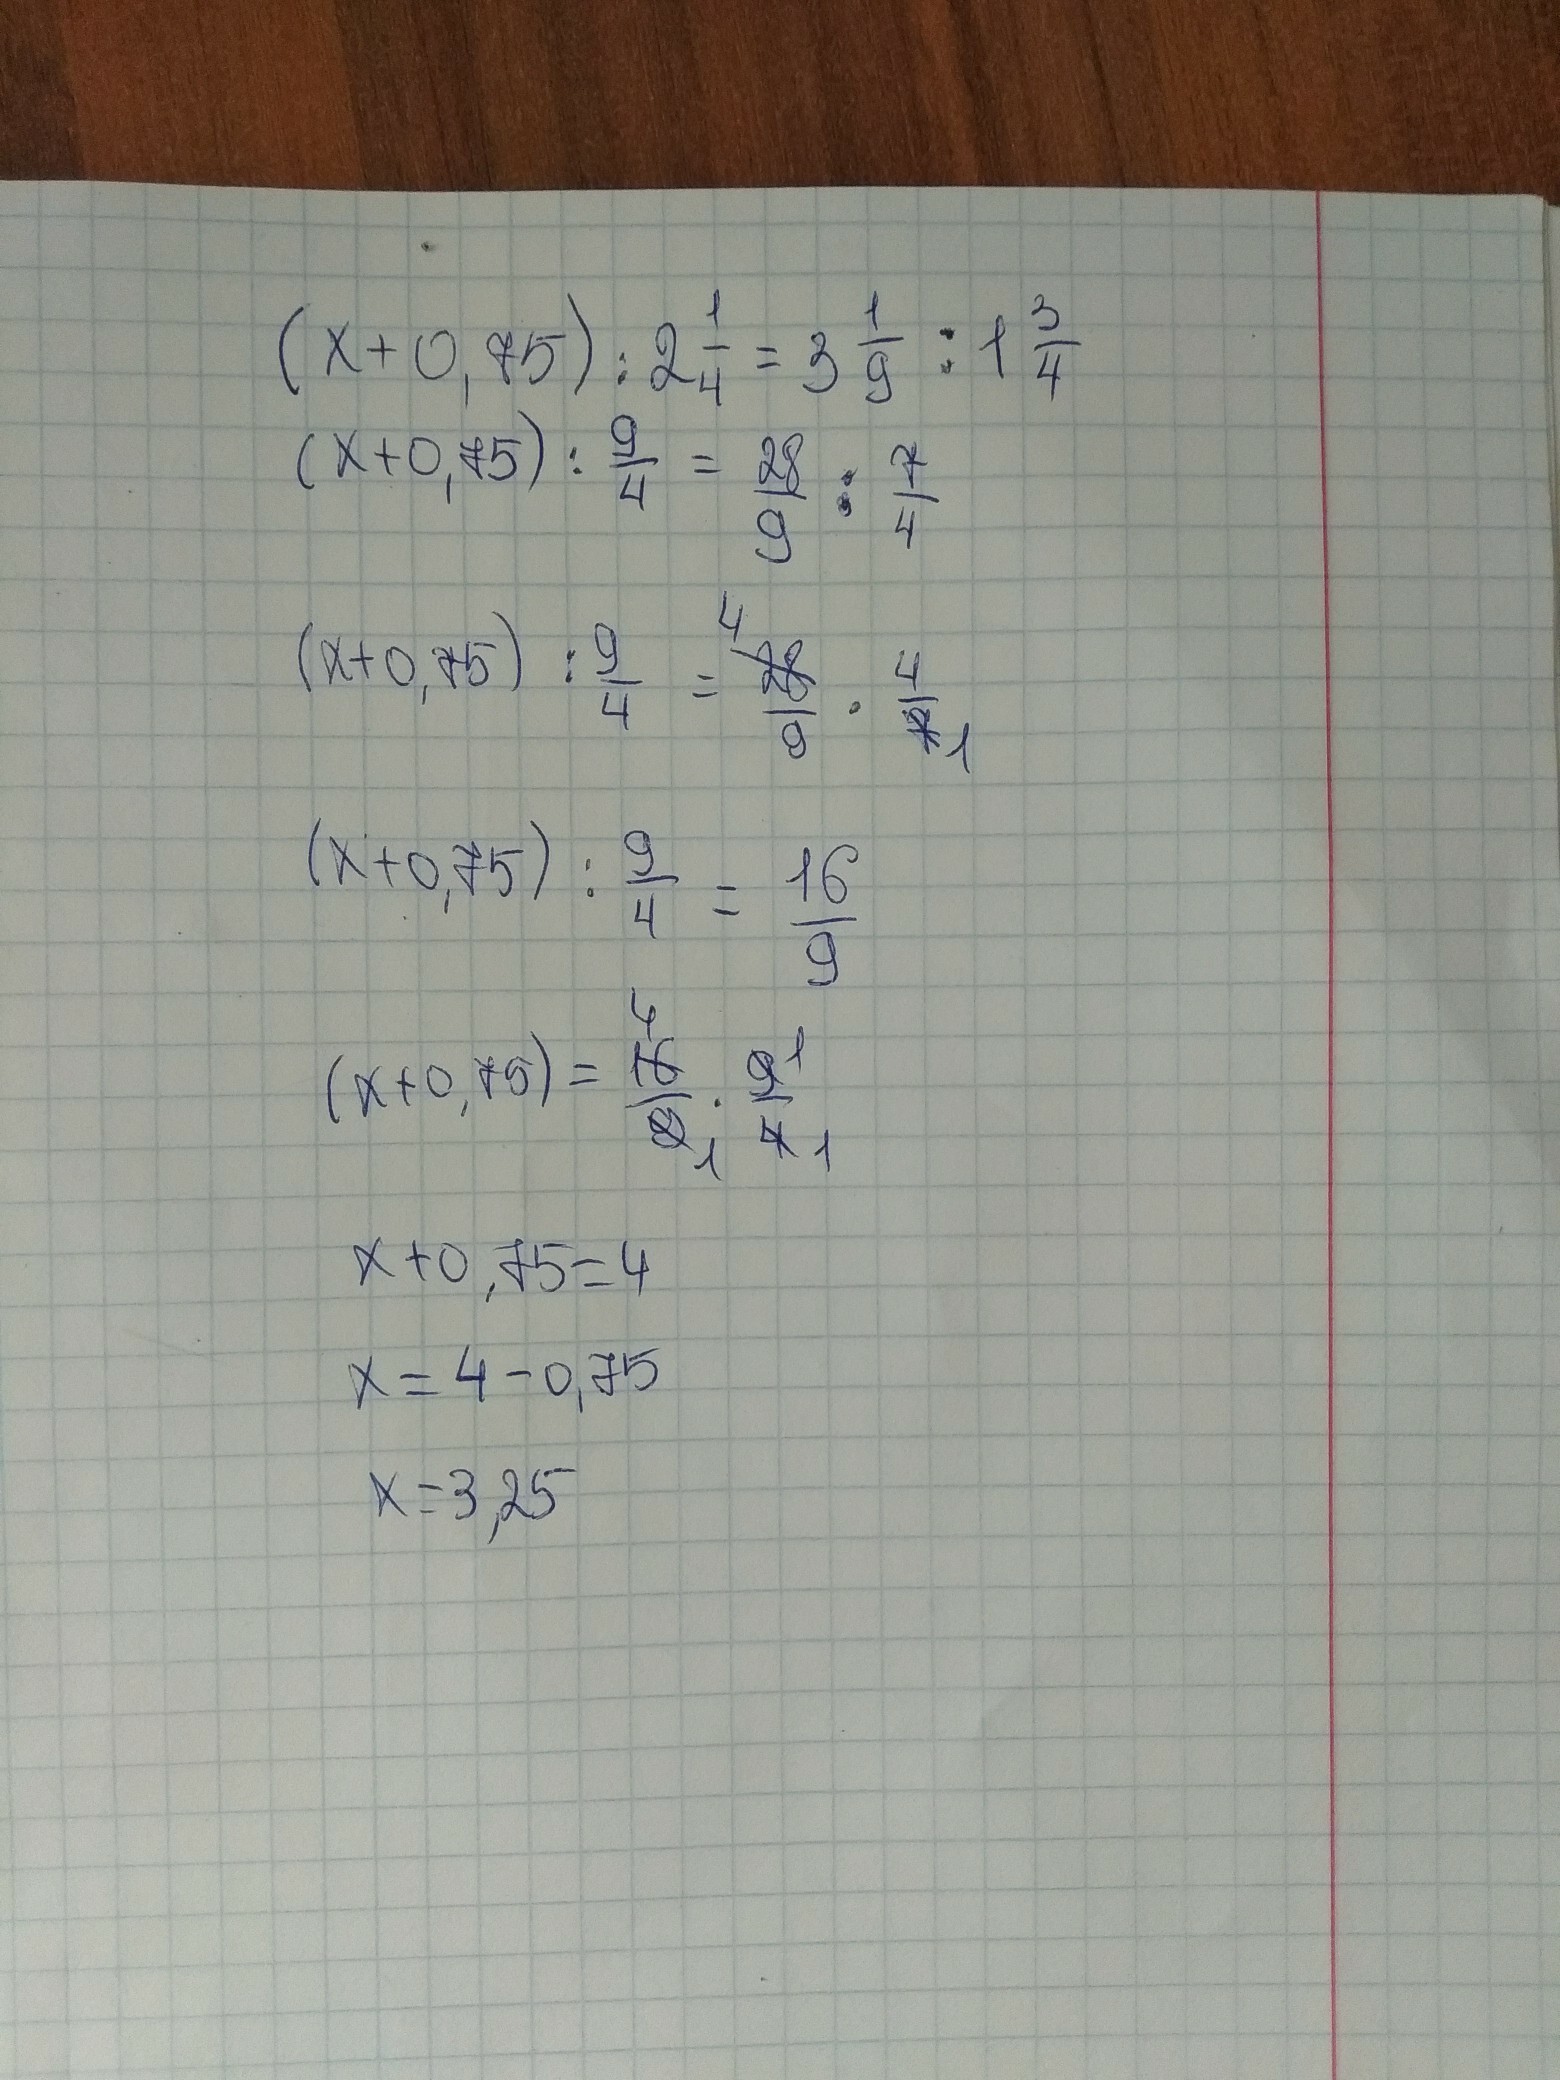 (x+0,75) : 2 1/4 = 3 1/9 : 1 3/4
(x+0,75) : 9/4 = 28/9 : 7/4
(x+0,75) : 9/4 = 4 28/9 · 4/7 1
(x+0,75) : 9/4 = 16/9
(x+0,75) = 4 16/9 1 · 9 1/4 1
x+0,75=4
x=4-0,75
x=3,25